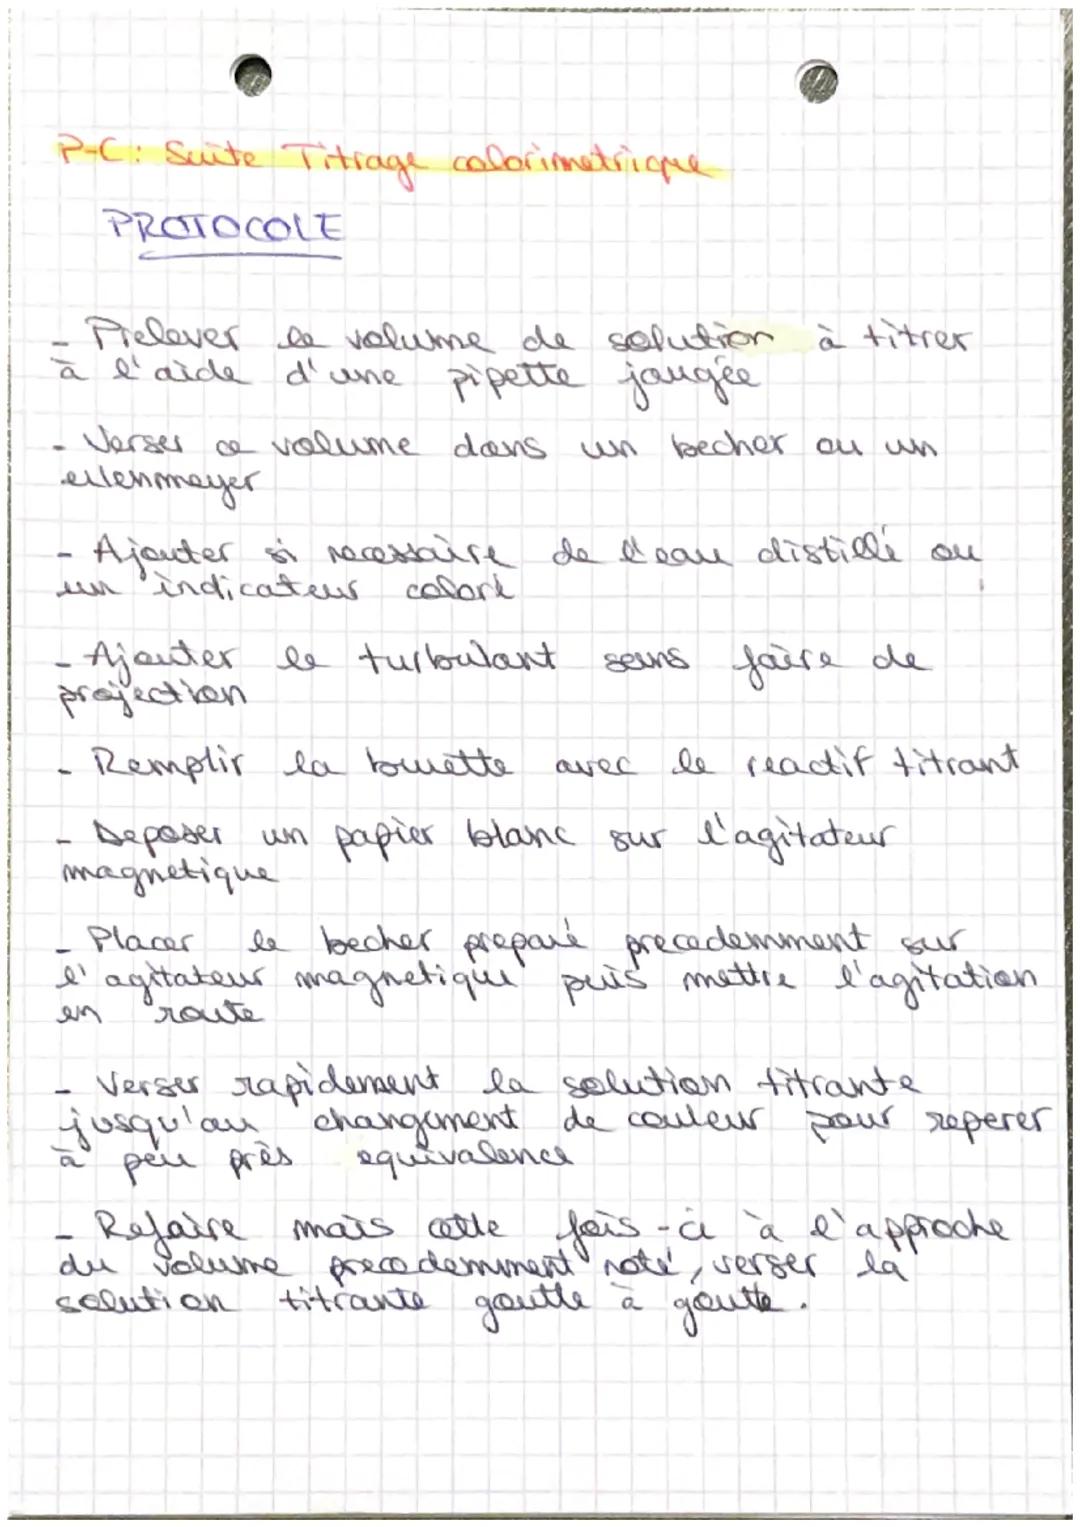 P-C : Suite Titrage colorimetrique
PROTOCOLE
- Prelever le volume de solution à titrer
à l'aide d'une pipette jaugée
- Verser ce volume dans un becher ou un
erlenmeyer
- Ajouter si necessaire de l'eau distillé ou
un indicateur coloré
- Ajouter le turbulant sans faire de
projection
- Remplir la burette avec le reactif titrant
- Deposer un papier blanc sur l'agitateur
magnetique
- Placer le becher preparé precedemment sur
l'agitateur magnetique puis mettre l'agitation
en route
- Verser rapidement la solution titrante
jusqu'au changement de couleur pour reperer
à peu près equivalence
- Refaire mais cette fois-ci à l'approche
du volume precedemment noté, verser la
solution titrante goutte à goutte.